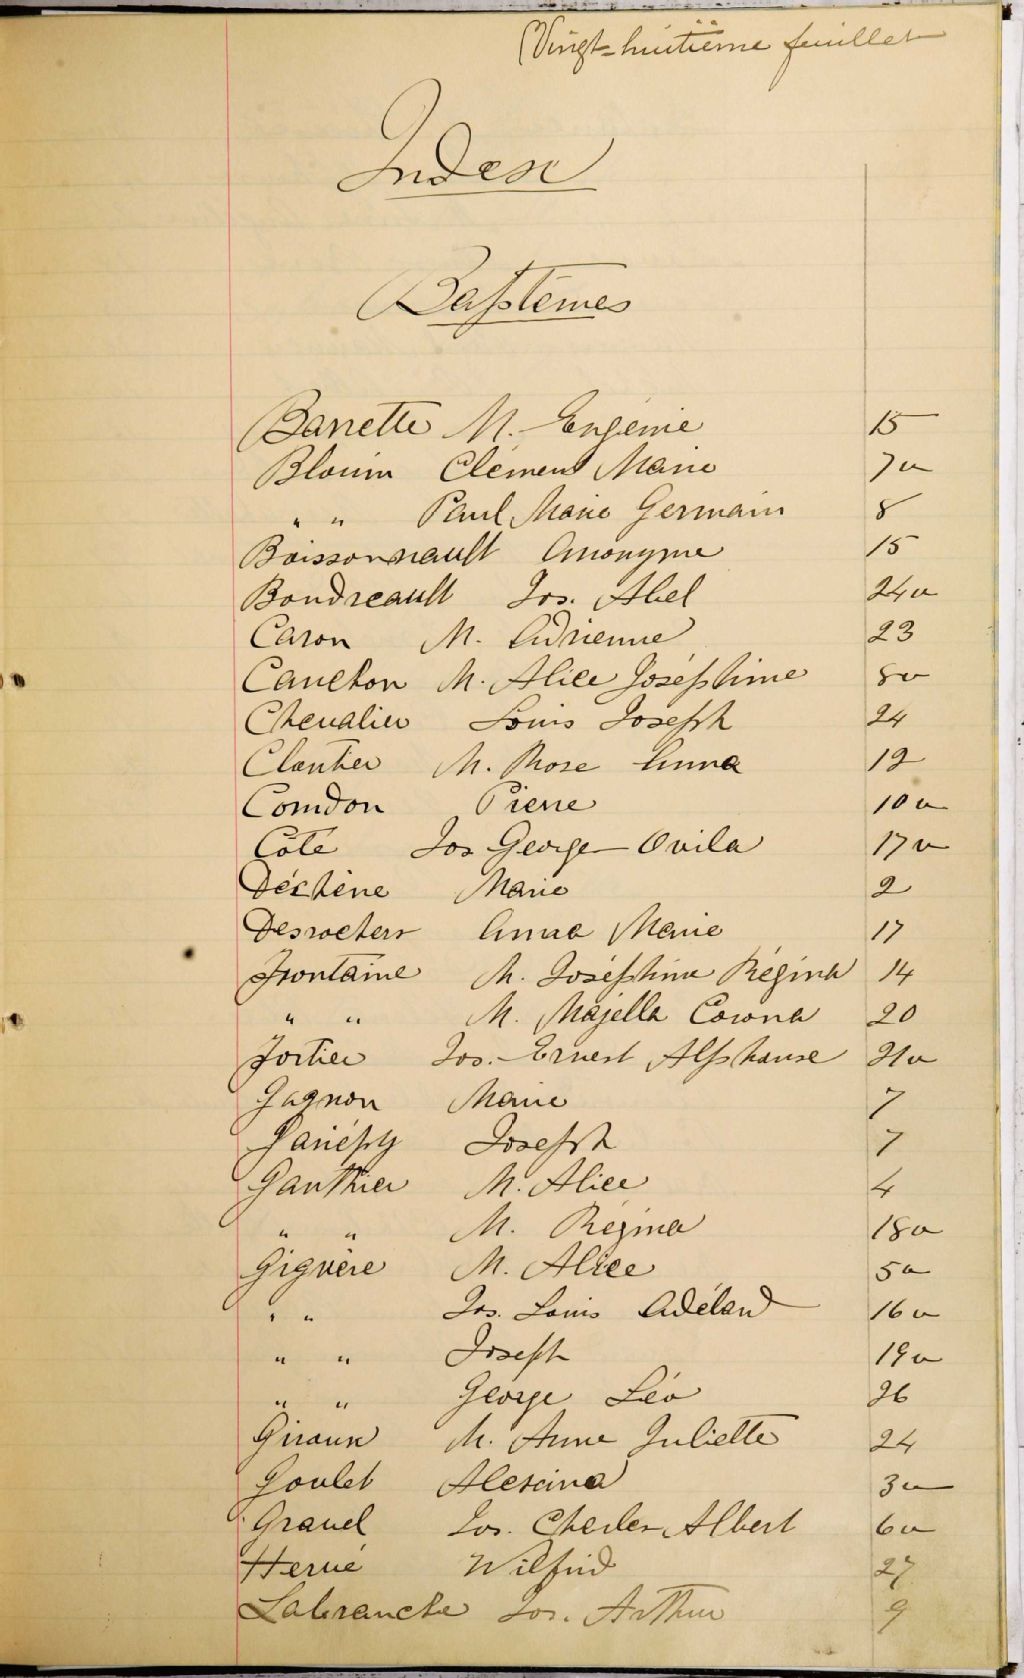 Vingt-huitième feuillet
Index
Baptêmes
Barrette M. Eugénie 15
Blouin Clément Marie 7v
" " Paul Marie Germain 8
Boissonnault Anonyme 15
Boudreault Jos. Abel 24v
Caron M. Adrienne 23
Cauchon M. Alice Joséphine 8v
Chevalier Louis Joseph 24
Cloutier M. Rose Anna 12
Comdon Pierre 10v
Côté Jos George Ovila 17v
Déchène Marie 2
Desrochers Anna Marie 17
Frontaine M. Joséphine Régina 14
" " M. Majella Corona 20
Fortier Jos. Ernest Alphonse 21v
Gagnon Marie 7
Gariépy Joseph 7
Gauthier M. Alice 4
" " M. Régina 18v
Giguère M. Alice 5v
" " Jos. Louis Adélard 16v
" " Joseph 19v
" " George Léo 26
Giroux M. Anne Juliette 24
Goulet Alexina 3v
Gravel Jos. Charles Albert 6v
Hervé Wilfrid 27
Labranche Jos. Arthur 9